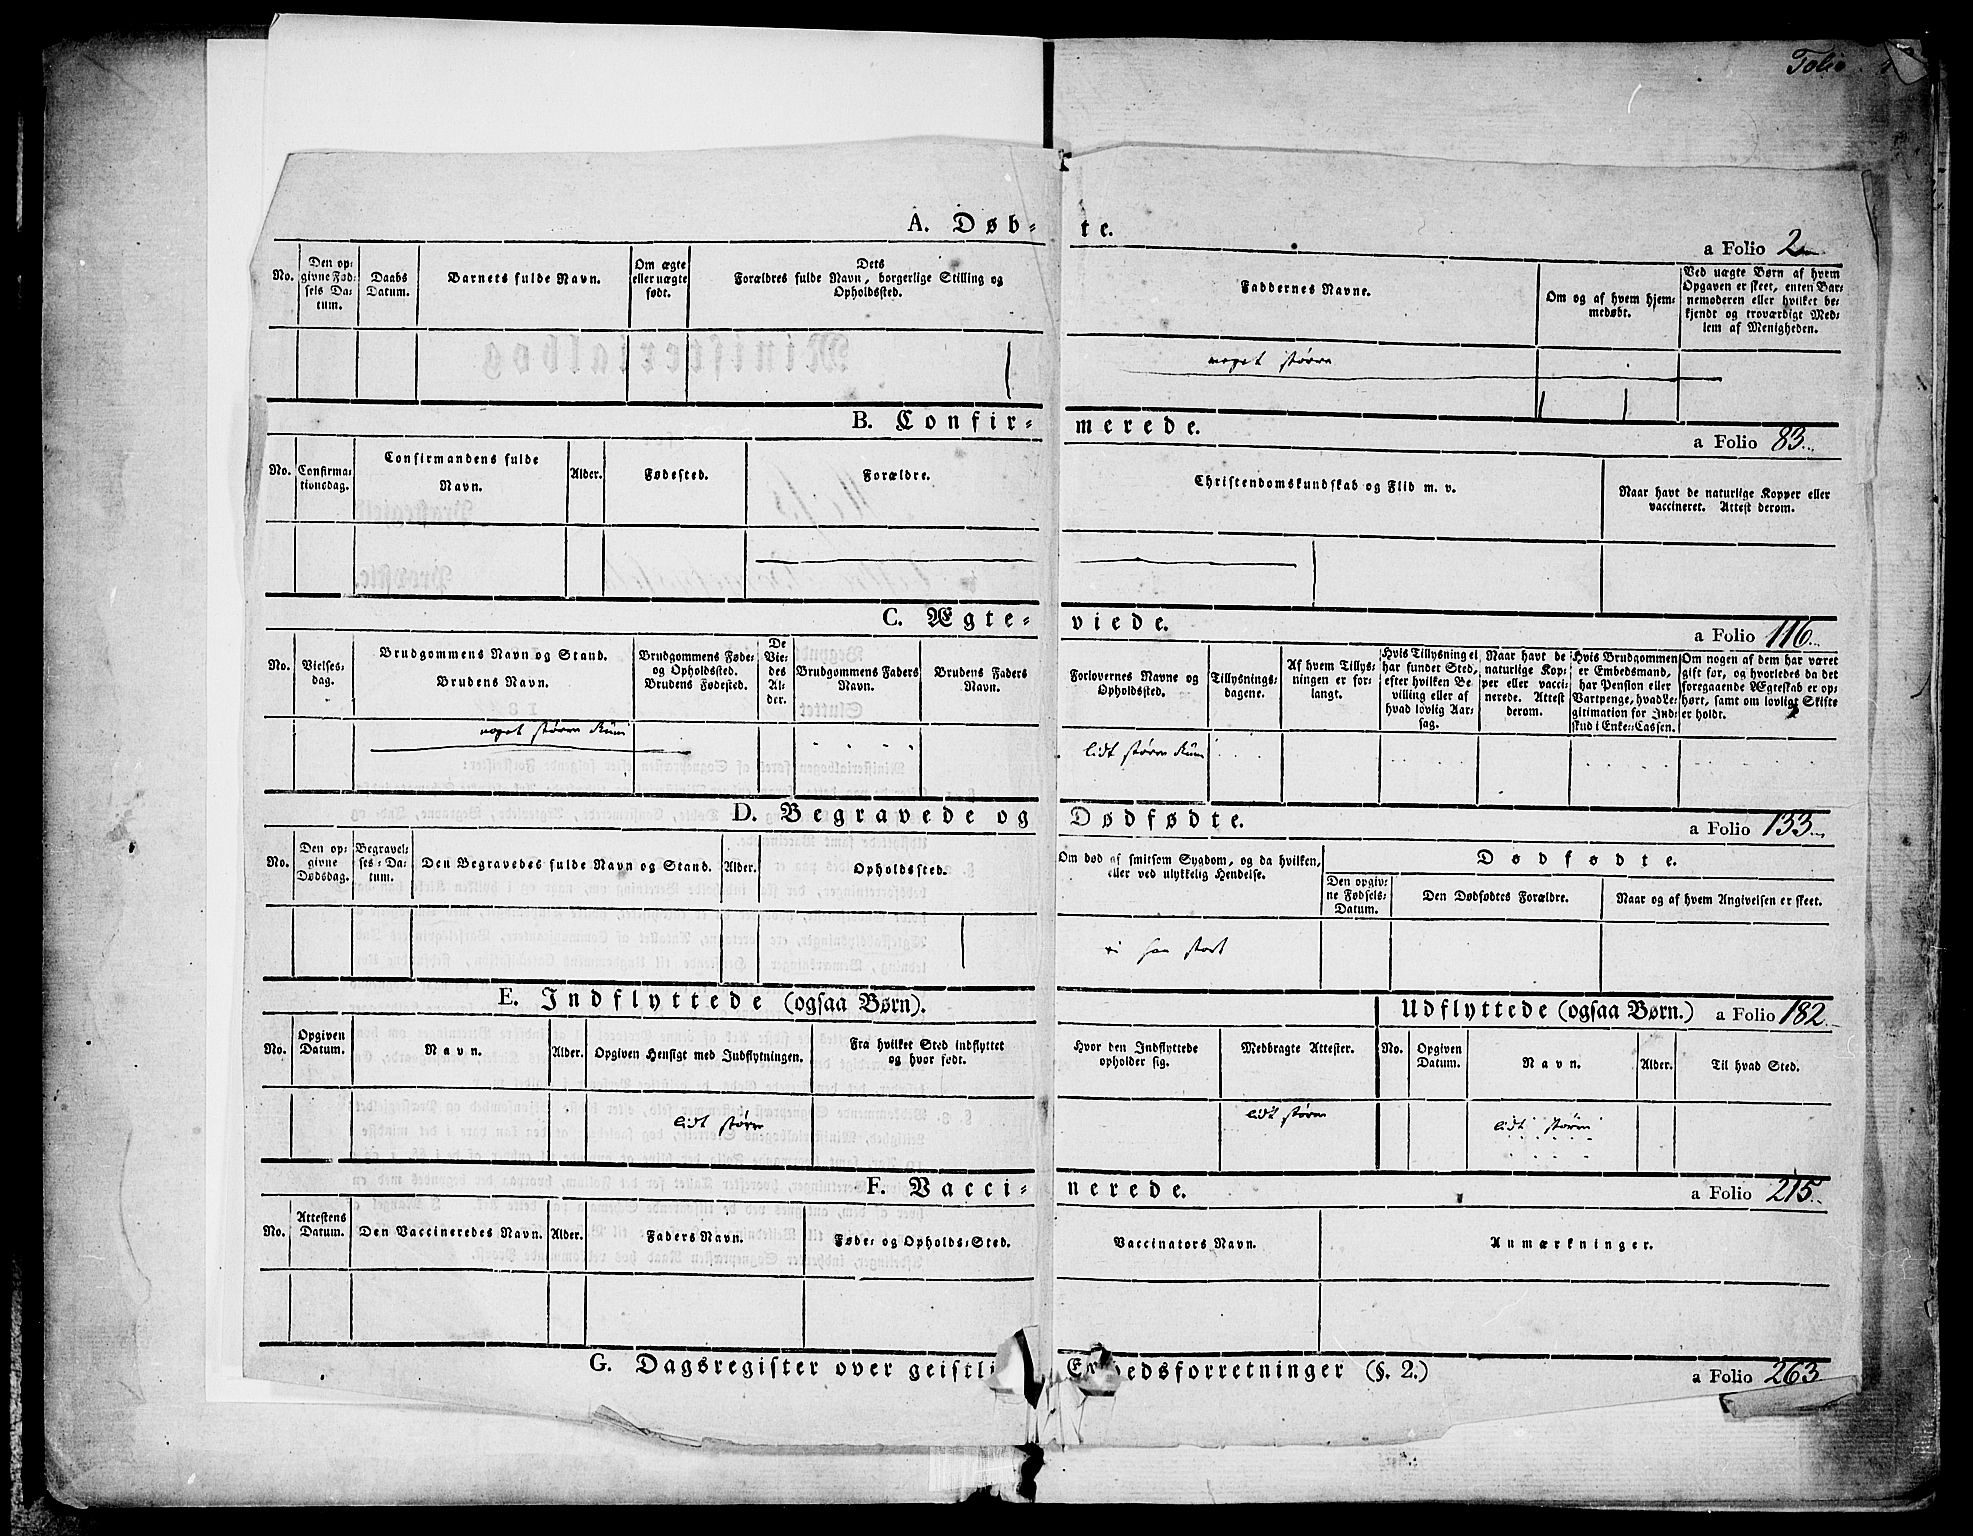 Folio
A. Døbte.
a Folio 2
No.
Den opgivne Fødsels Datum.
Daabs Datum.
Barnets fulde Navn.
Om ægte eller uægte født.
Dets Forældres fulde Navn, borgerlige Stilling og Opholdssted.
Faddernes Navne.
Om og af hvem hjemmedøbt.
Ved uægte Børn af hvem Opgaven er skeet, enten Barnemoderen eller hvilket bekjendt og troværdigt Medlem af Menigheden.
noget større
B. Confirmerede.
a Folio 83
No.
Confirmationsdag.
Confirmandens fulde Navn.
Alder.
Fødested.
Forældre.
Christendomskundskab og Flid m. v.
Naar havt de naturlige Kopper eller vaccineret. Attest derom.
C. Ægteviede.
a Folio 116
No.
Vielsesdag.
Brudgommens Navn og Stand.
Brudens Navn.
Brudgommens Føde- og Opholdssted.
Brudens Fødested.
De Viedes Alder.
Brudgommens Faders Navn.
Brudens Faders Navn.
Forlovernes Navne og Opholdssted.
Tillysningsdagene.
Af hvem Tillysningen er forlangt.
Hvis Tillysning ei har fundet Sted, efter hvilken Bevilling eller af hvad lovlig Aarsag.
Naar havt de naturlige Kopper eller vaccinerede. Attest derom.
Hvis Brudgommen er Embedsmand, har Pension eller Vartpenge, hvad Legitimation for Indskud i Enke-Cassen.
Om nogen af dem har været gift før, og hvorledes da det foregaaende Ægteskab er ophørt, samt om lovligt Skifte er holdt.
noget større Rum
lidt større Rum
D. Begravede og Dødfødte.
a Folio 133
No.
Den opgivne Dødsdag.
Begravelses-Datum.
Den Begravedes fulde Navn og Stand.
Alder.
Opholdssted.
Om død af smitsom Sygdom, og da hvilken, eller ved ulykkelig Hendelse.
Dødfødte.
Den opgivne Fødsels-Datum.
Den Dødfødtes Forældre.
Naar og af hvem Angivelsen er skeet.
E. Indflyttede (ogsaa Børn).
Udflyttede (ogsaa Børn.) a Folio 182
No.
Opgiven Datum.
Navn.
Alder.
Opgiven Hensigt med Indflytningen.
Fra hvilket Sted indflyttet og hvor født.
Hvor den Indflyttede opholder sig.
Medbragte Attester.
No.
Opgiven Datum.
Navn.
Alder.
Til hvad Sted.
lidt større
lidt større
lidt større
F. Vaccinerede.
a Folio 215
No.
Attestens Datum.
Den Vaccineredes Navn.
Alder.
Faders Navn.
Føde- og Opholds-Sted.
Vaccinators Navn.
Anmærkninger.
G. Dagsregister over geistli Embedsforretninger (§. 2.)
a Folio 263